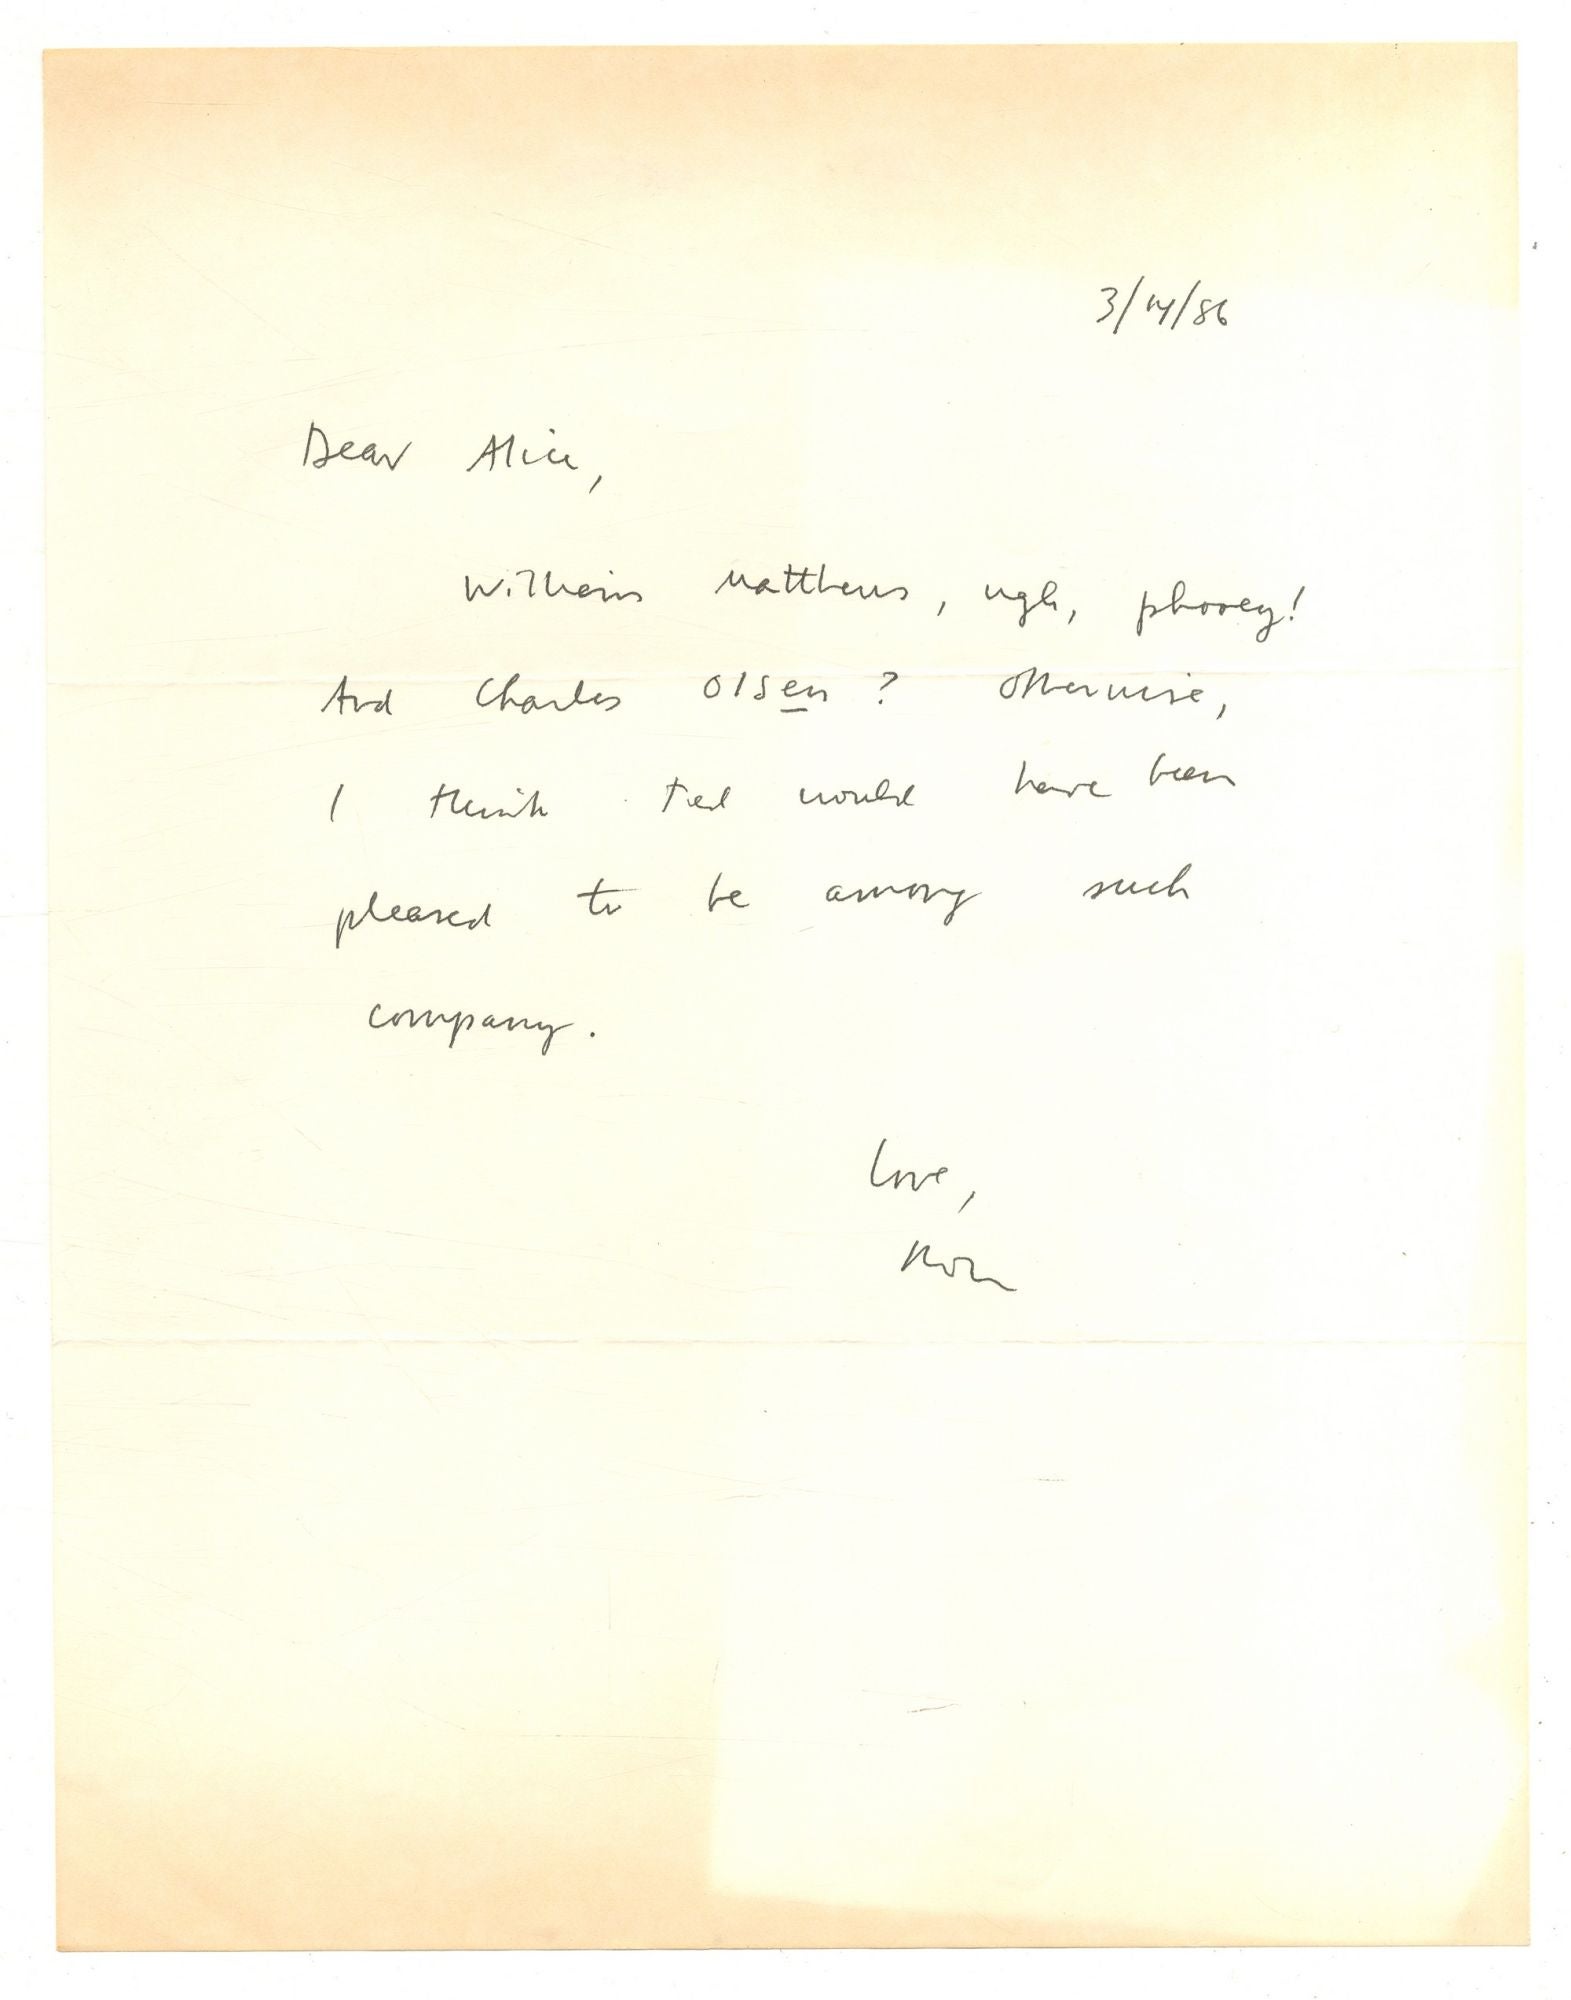 3/14/86
Dear Alice,
William Matthews, ugh, phooey!
And Charles Olsen? Otherwise,
I think Ted would have been
pleased to be among such
company.
Love,
Ron